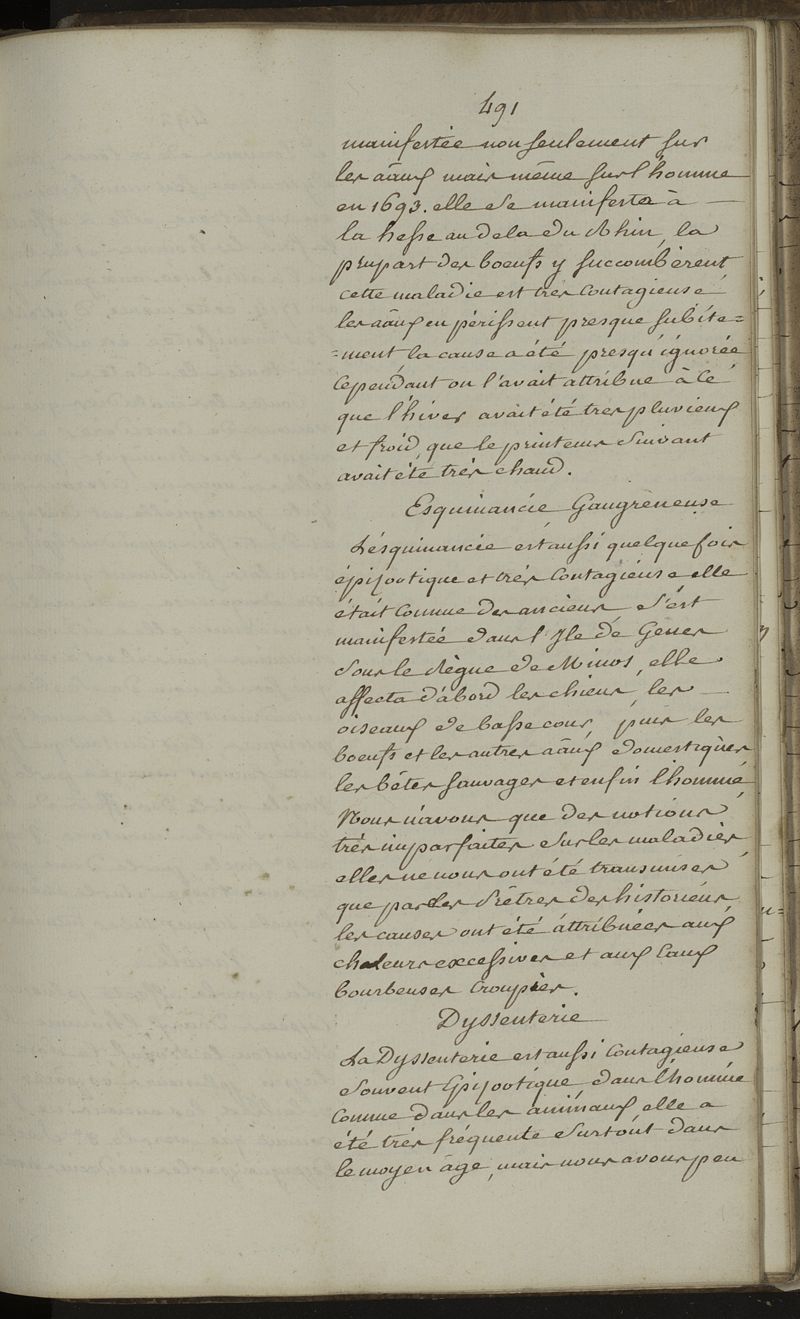 491
manifestée non seulement sur
les aãux mais même sur l'homme
en 1693. elle se manifesta à
la hesse au dela du Rhin, la
plupart des boeufs y succombèrent
cette maladie est très contagieuse
les aãux en périssent presque subite=
=ment la cause a été presqu'ignorée
cependant on l'avait attribue à ce
que l'hiver avait été tres pluvieux
et froid, que le printems suivant
avait été très chaud.
Esquinancie Gangrèneuse
L'ésquinancie est aussi quelque fois
épizootique et très contagieuse elle
était connue des anciens, s'est
manifestée dans l'Ile de
sous le règne de Minos, elle
affecta d'abord les chiens, les
oiseaux de basse cour, puis les
boeufs et les autres aãux domestiques
les bêtes sauvages et enfin l'homme
Nous n'avons que des notions
très imparfaites sur les maladies
elles ne nous ont été transmises
que par les des historiens
les causes ont été attribuées aux
chaleurs excessives et aux Eaux
bourbeuses croupies.
Dyssenterie
La Dyssenterie est aussi contagieuse
souvent Epizootique, dans l'homme
comme dans les animaux, elle a
été très fréquente surtout dans
le moyen âge, mais nous avons peu